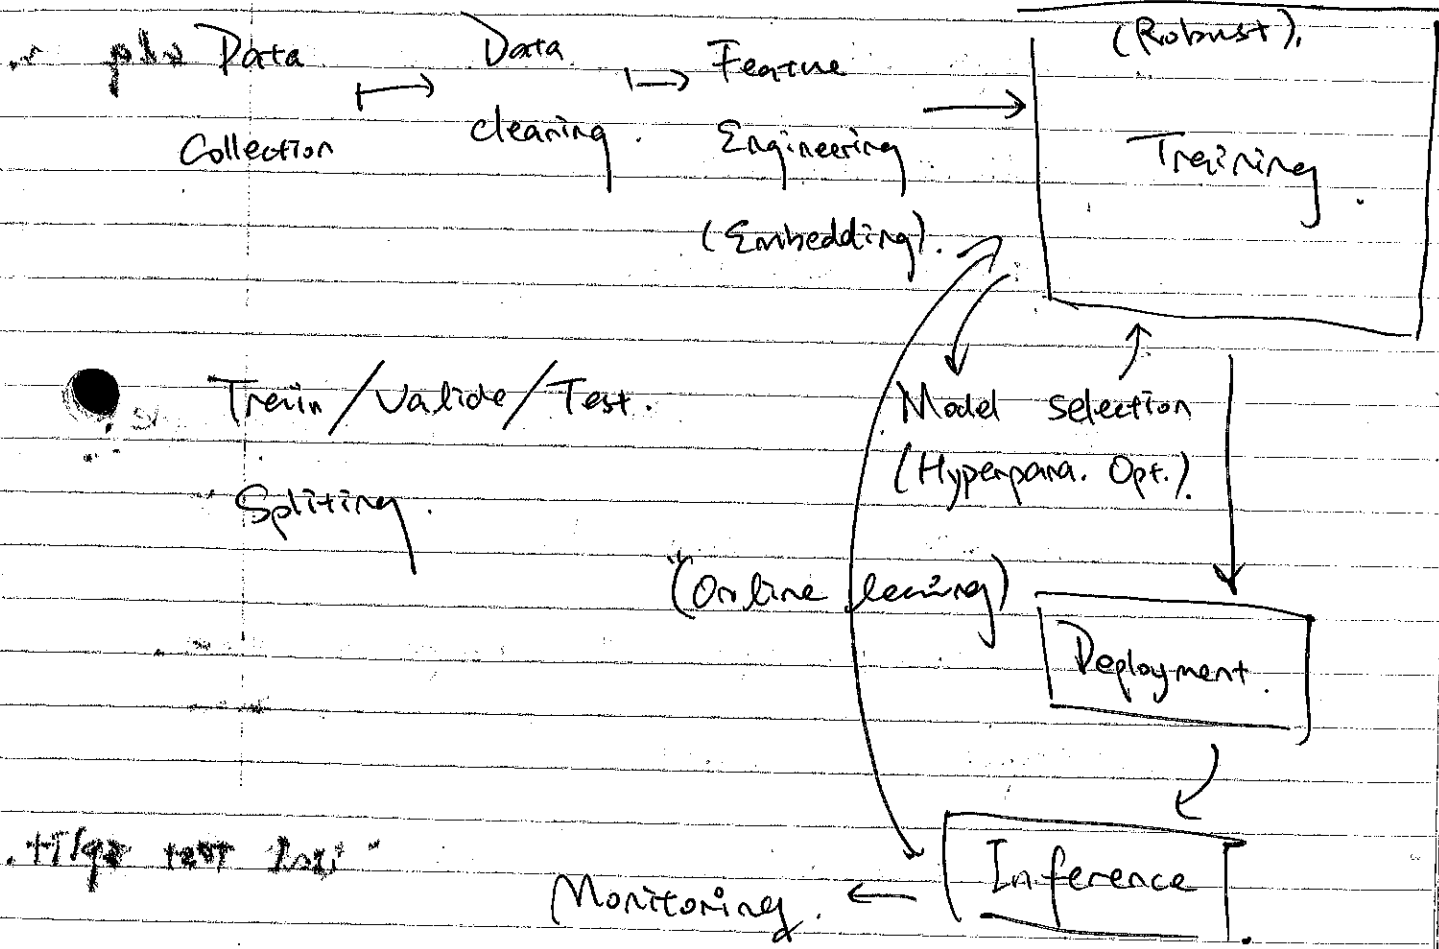 Data
Collection
Data
cleaning.
Feature
Engineering
(Embedding).
(Robust).
Training.
Train/Valide/Test.
Spliting.
Model selection
(Hyperpara. Opt.).
(Online learning)
Deployment.
Inference
Monitoring.